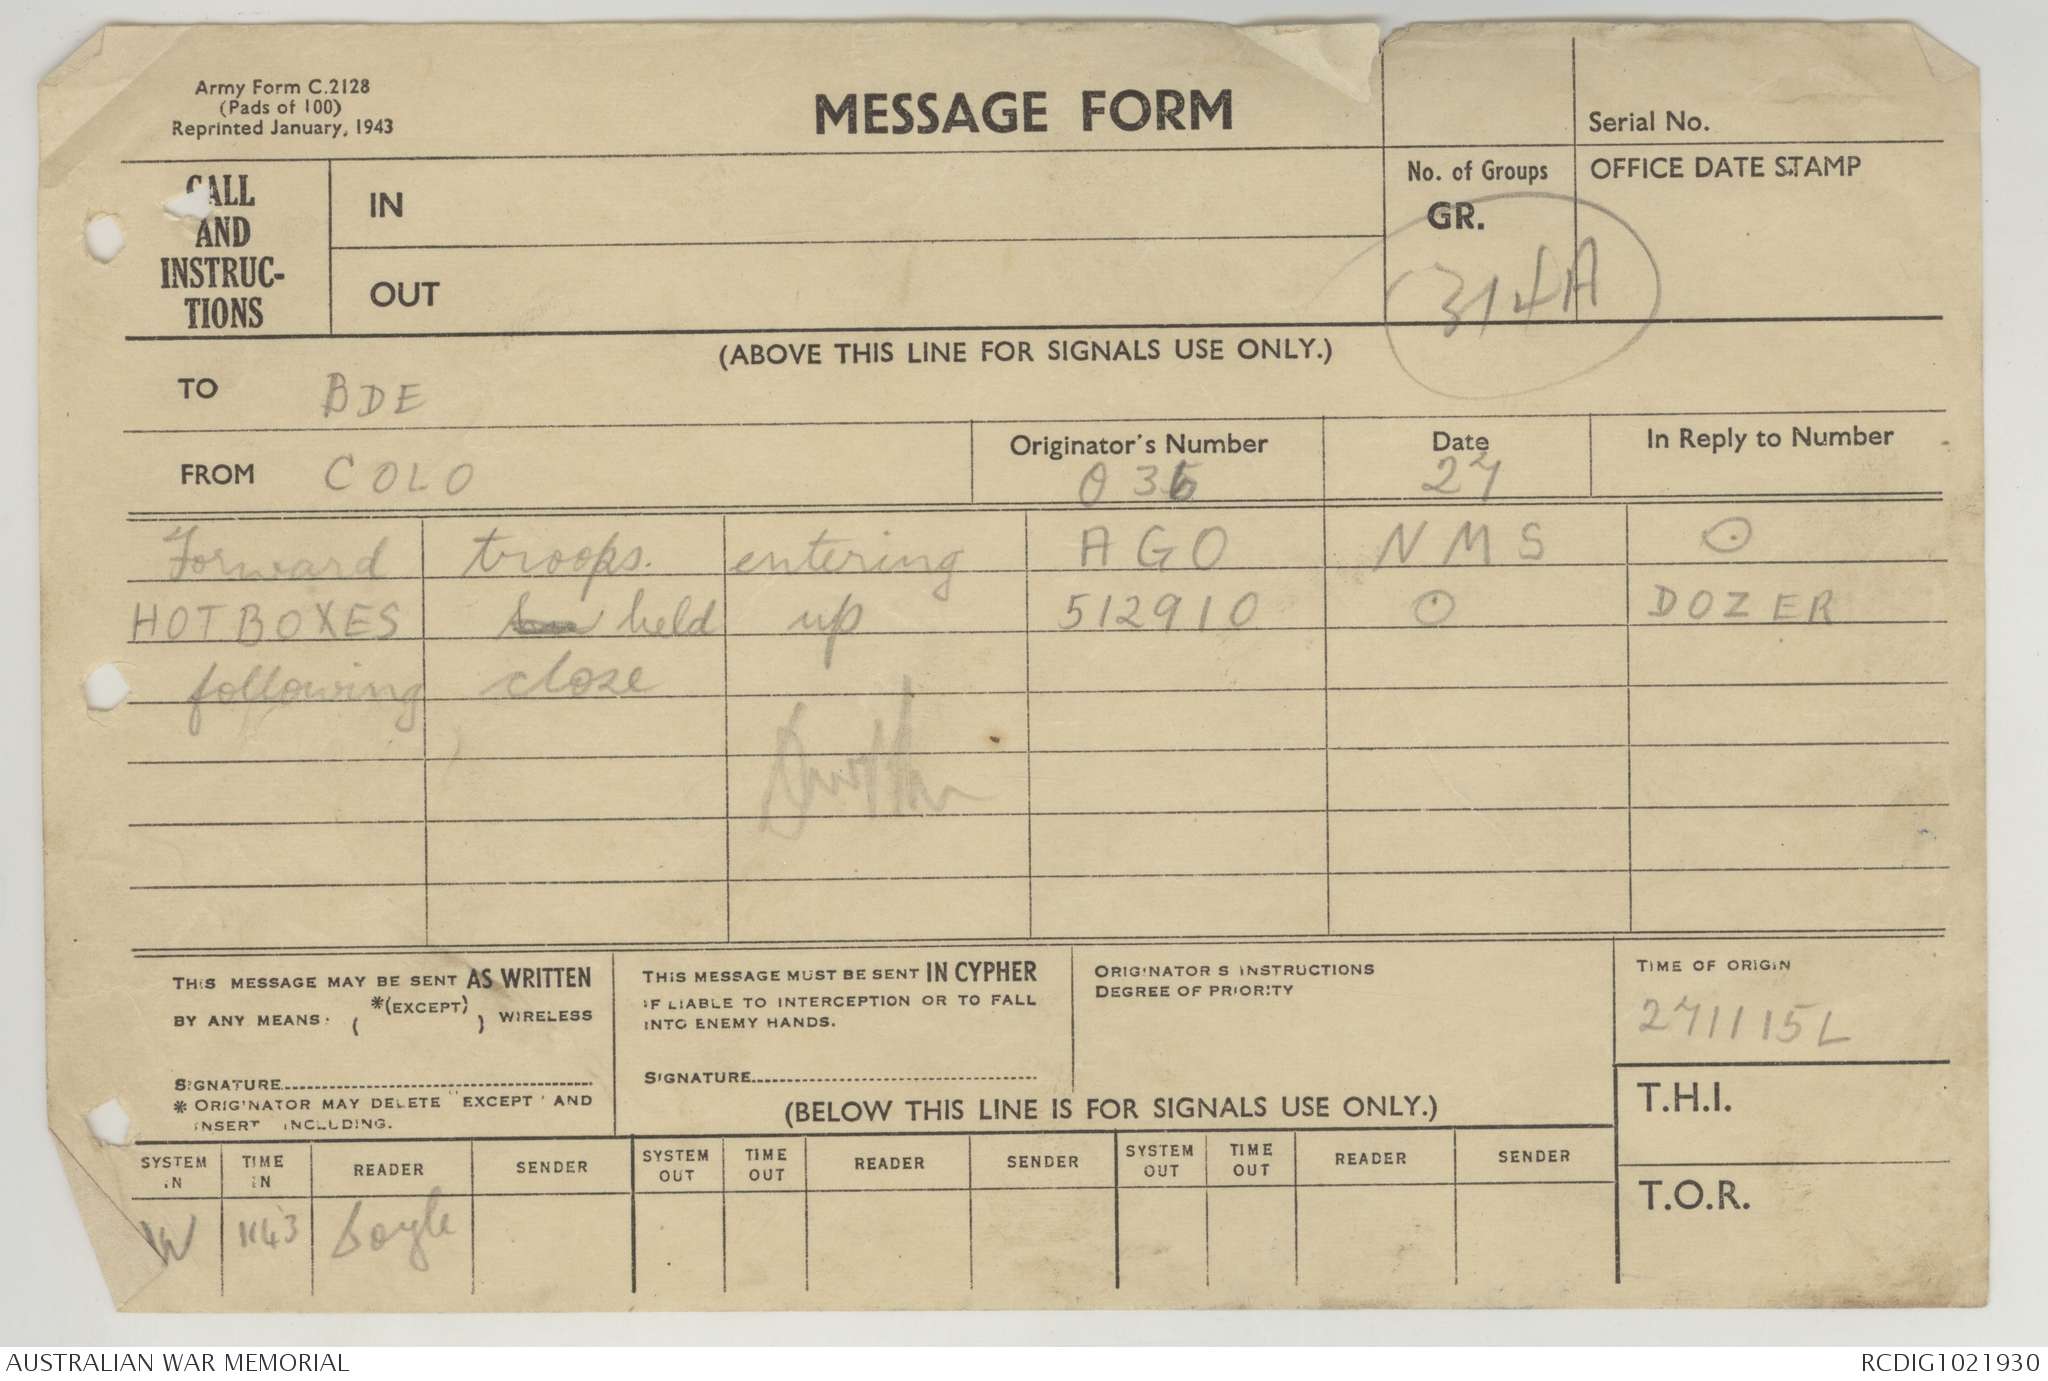 Army Form C.2128
(Pads of 100)
Reprinted January, 1943
MESSAGE FORM
Serial No.
CALL AND INSTRUC-TIONS
IN
OUT
No. of Groups
GR.
OFFICE DATE STAMP
314A
(ABOVE THIS LINE FOR SIGNALS USE ONLY.)
TO BDE
FROM COLO
Originator's Number
036
Date
27
In Reply to Number
Forward troops. entering AGO NMS O
HOTBOXES held up 512910 O DOZER
following close
THIS MESSAGE MAY BE SENT AS WRITTEN
BY ANY MEANS. *(EXCEPT) ( ) WIRELESS
SIGNATURE
* ORIGINATOR MAY DELETE "EXCEPT" AND
INSERT INCLUDING.
THIS MESSAGE MUST BE SENT IN CYPHER
IF LIABLE TO INTERCEPTION OR TO FALL
INTO ENEMY HANDS.
SIGNATURE
ORIGINATOR S INSTRUCTIONS
DEGREE OF PRIORITY
TIME OF ORIGIN
271115L
(BELOW THIS LINE IS FOR SIGNALS USE ONLY.)
T.H.I.
T.O.R.
SYSTEM IN TIME IN READER SENDER SYSTEM OUT TIME OUT READER SENDER SYSTEM OUT TIME OUT READER SENDER
W 1143 Boyle
AUSTRALIAN WAR MEMORIAL
RCDIG1021930